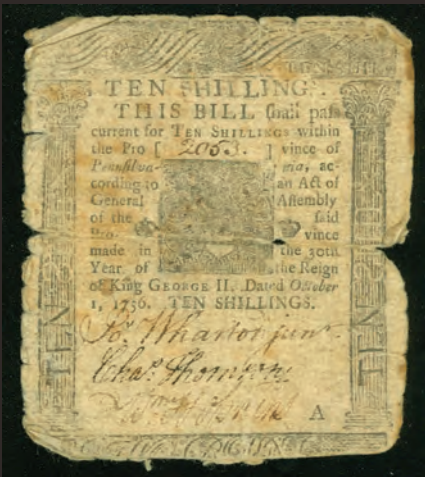 TEN SHILLINGS.
THIS BILL shall pass
current for TEN SHILLINGS within
the Pro [ 2053. ] vince of
Pennsilva- nia, ac-
cording to an Act of
General Assembly
of the said
Pro- vince
made in the 30th
Year of the Reign
of King GEORGE II. Dated October
1, 1756. TEN SHILLINGS.
Wharton junr
Chas. Thomson
A
TEN
TEN